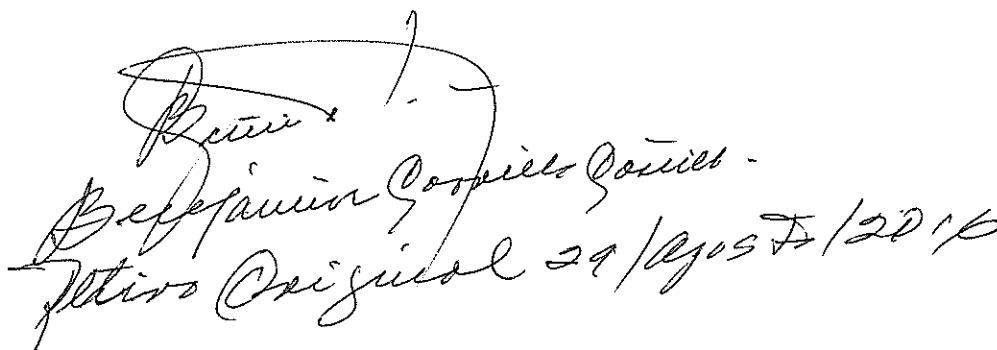 Benjamín Carrillo Carrillo.
Retiro Original 29/Agosto/2016